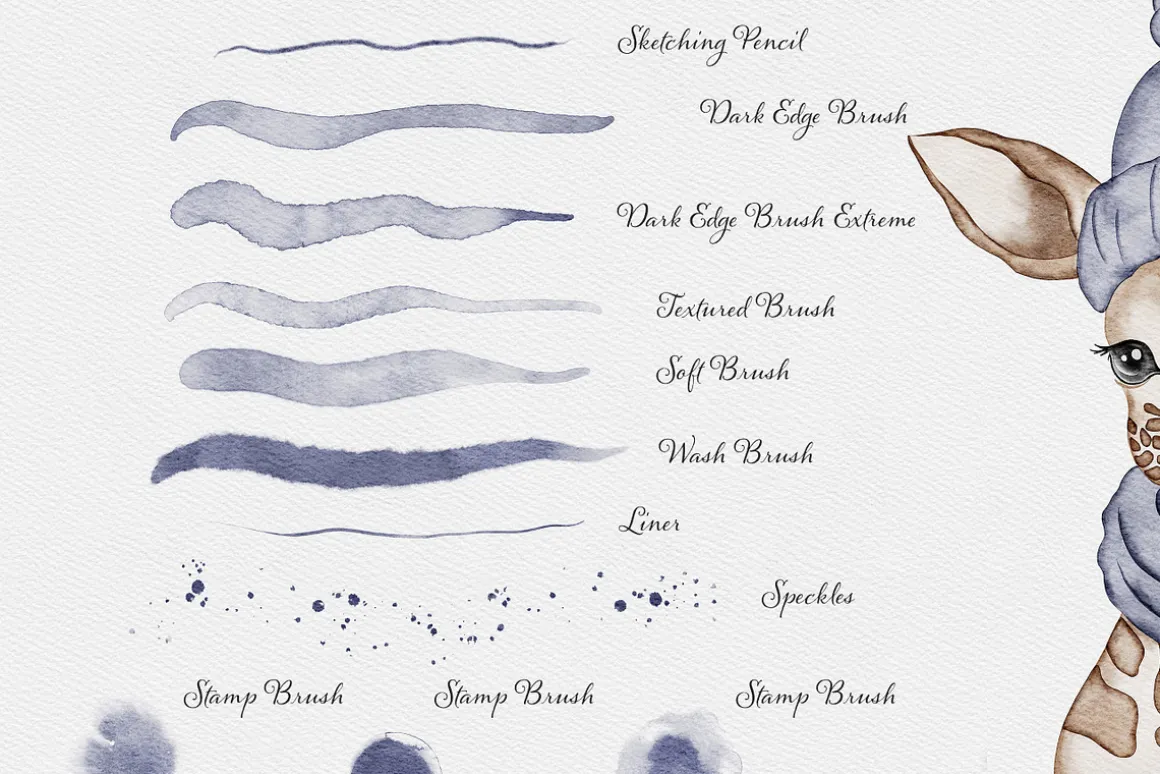 Sketching Pencil
Dark Edge Brush
Dark Edge Brush Extreme
Textured Brush
Soft Brush
Wash Brush
Liner
Speckles
Stamp Brush Stamp Brush Stamp Brush